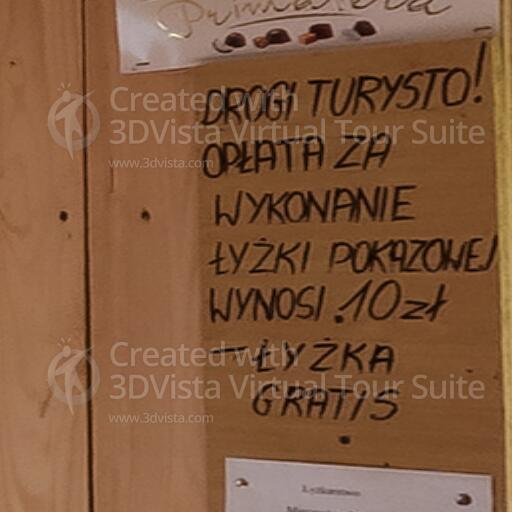 Primavera
DROGI TURYSTO!
OPŁATA ZA
WYKONANIE
ŁYŻKI POKAZOWEJ
WYNOSI. 10 zł
– ŁYŻKA
GRATIS
Created with
3DVista Virtual Tour Suite
www.3dvista.com
Created with
3DVista Virtual Tour Suite
www.3dvista.com
Łyżkarstwo